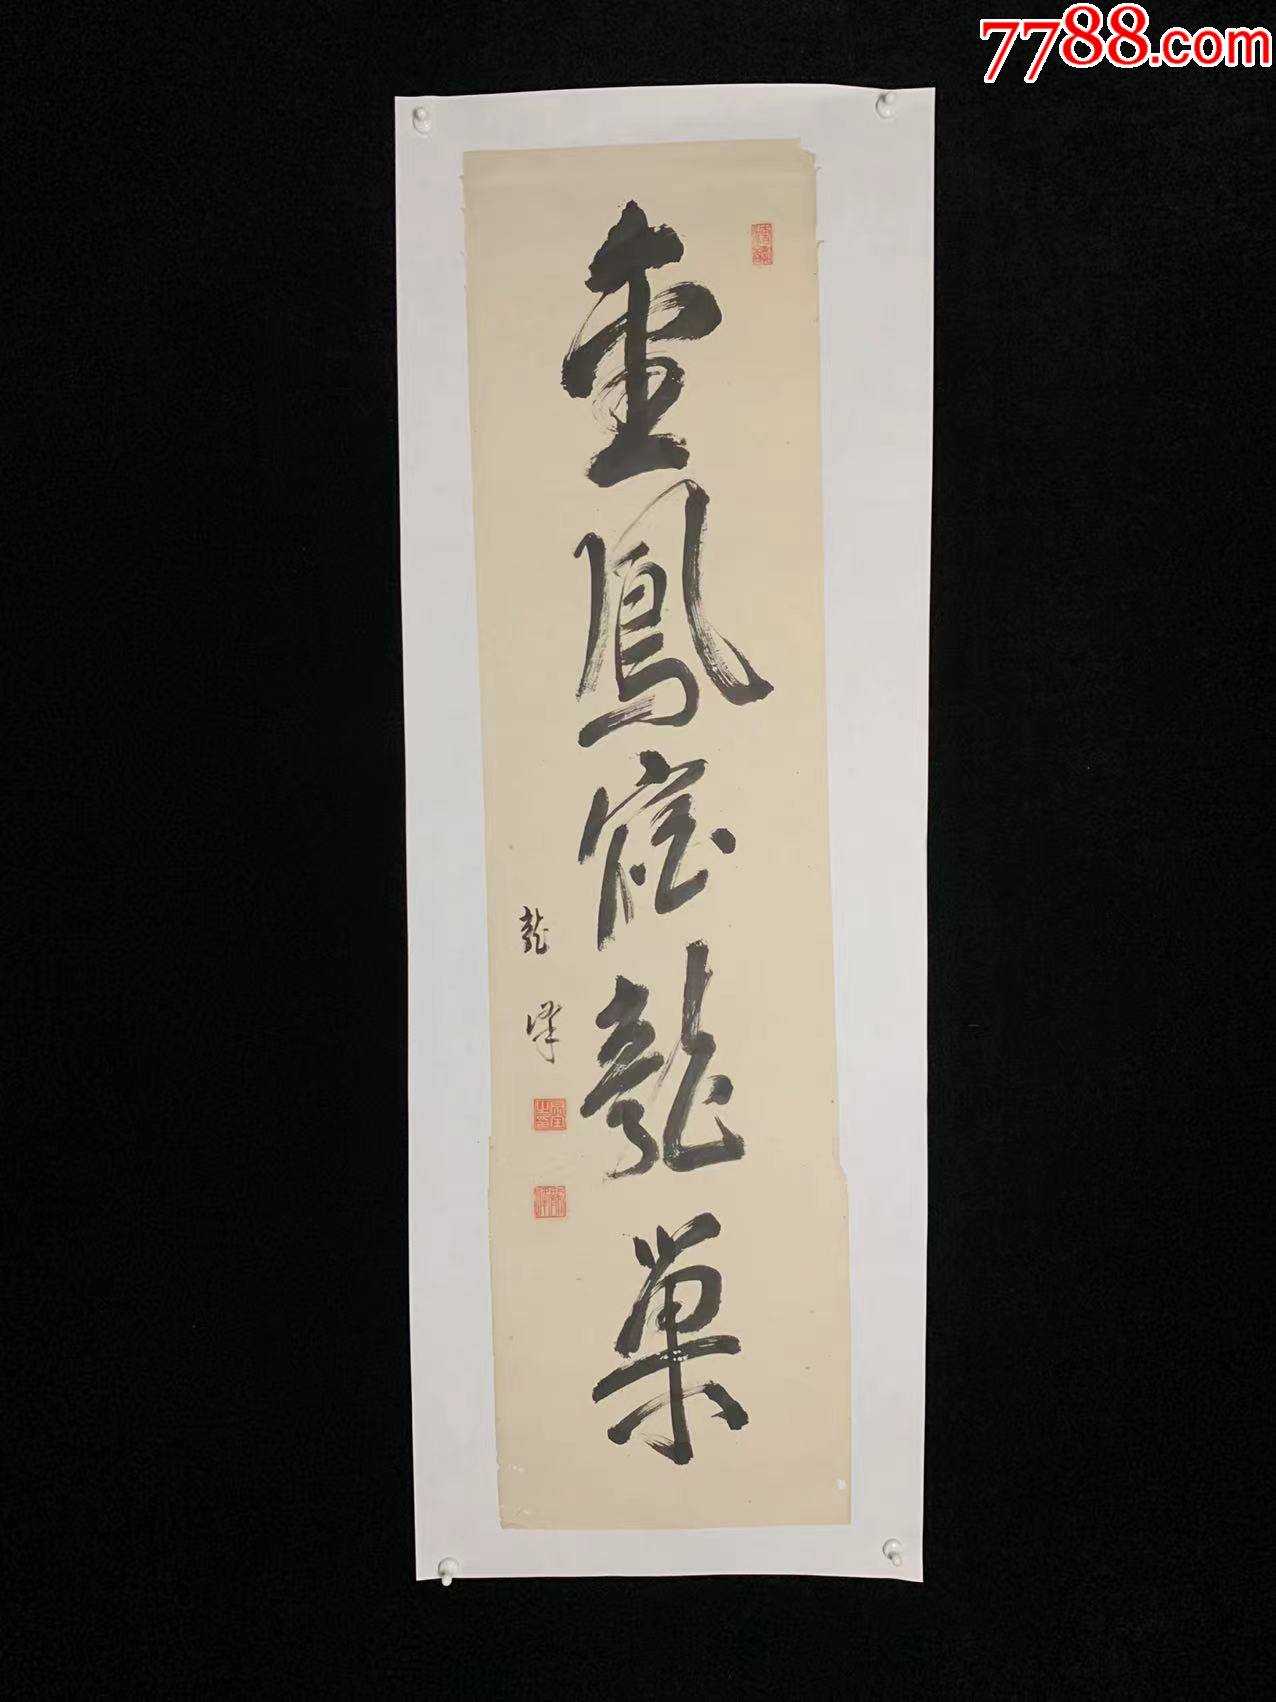 7788.com
金鳳宿龍巣
龍